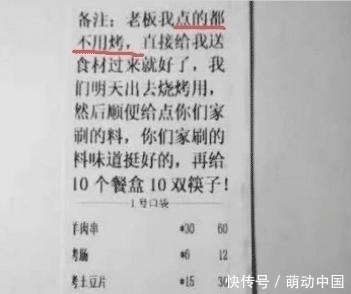 备注：老板我点的都
不用烤，直接给我送
食材过来就好了，我
们明天出去烧烤用，
然后顺便给点你们家
刷的料，你们家刷的
料味道挺好的，再给
10个餐盒10双筷子！
1号口袋
羊肉串 *30 60
烤肠 *6 12
烤土豆片 *15 30
快传号 / 萌动中国